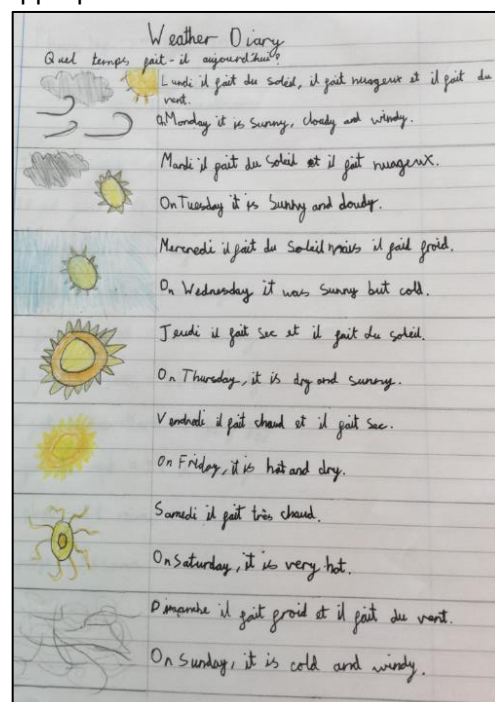 Weather Diary
Quel temps fait-il aujourd'hui?
Lundi il fait du soleil, il fait nuageux et il fait du
vent.
On Monday it is sunny, cloudy and windy.
Mardi il fait du soleil et il fait nuageux.
On Tuesday it is sunny and cloudy.
Mercredi il fait du soleil mais il fait froid.
On Wednesday it was sunny but cold.
Jeudi il fait sec et il fait du soleil.
On Thursday, it is dry and sunny.
Vendredi il fait chaud et il fait sec.
On Friday, it is hot and dry.
Samedi il fait très chaud.
On Saturday, it is very hot.
Dimanche il fait froid et il fait du vent.
On Sunday, it is cold and windy.